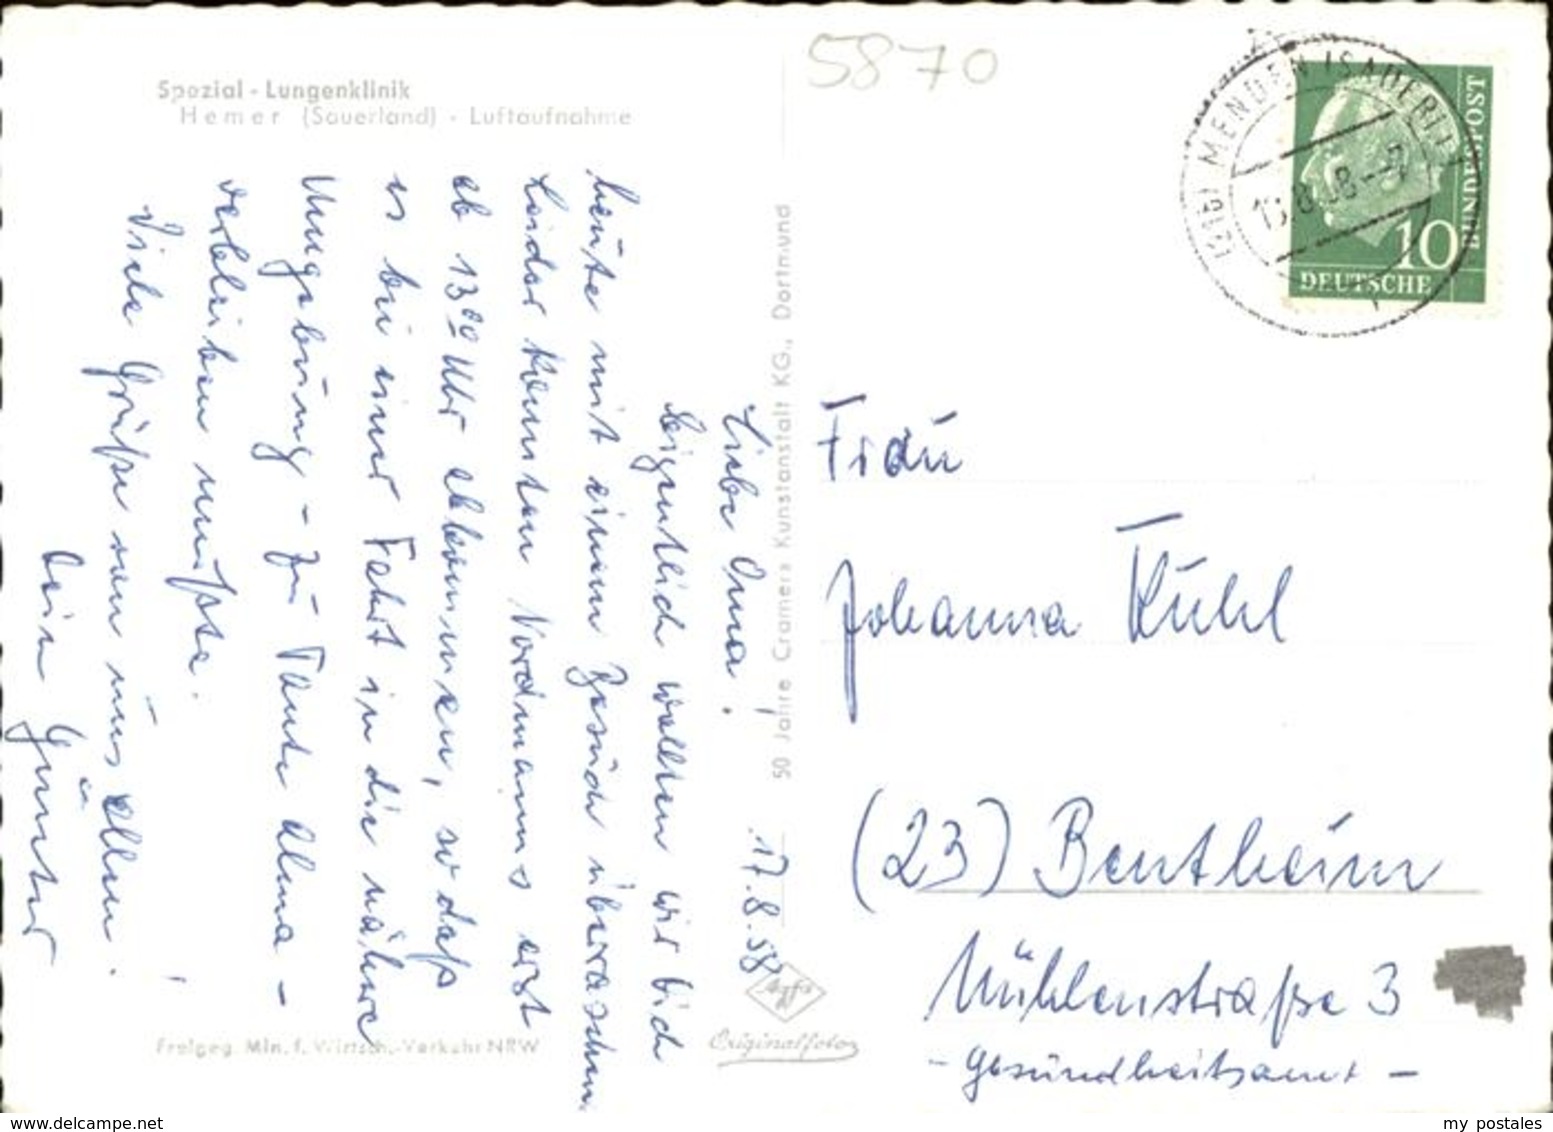 5870
Spezial - Lungenklinik
Hemer (Sauerland) - Luftaufnahme
17.8.58
Liebe Oma!
Eigentlich wollten wir Dich
heute mit einem Besuch überraschen.
Leider konnten Nordmanns erst
ab 13ºº Uhr abkommen, so daß
es bei einer Fahrt in die nähere
Umgebung - zu Tante Alma -
verbleiben mußte.
Viele Grüße von uns allen.
Dein Günter
50 Jahre Cramers Kunstanstalt KG., Dortmund
Agfa
Originalfoto
Freigeg. Min. f. Wirtsch.-Verkehr NRW
MENDEN (SAUERL)
.8.58--7
10
DEUTSCHE
BUNDESPOST
Frau
Johanna Kühl
(23) Bentheim
Mühlenstraße 3
- Gesundheitsamt -
www.delcampe.net
my postales